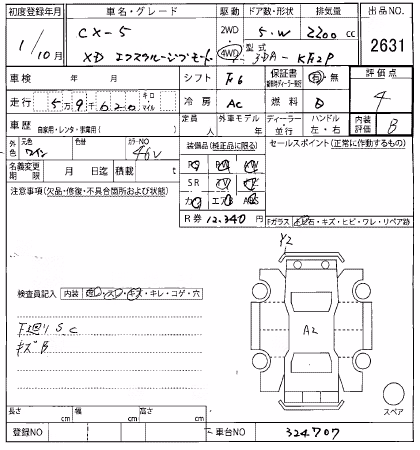 初度登録年月 車名・グレード 駆動 ドア数・形状 排気量 出品NO.
1/10月 CX-5 2WD 5・W 2200cc 2631
XD エクスクルーシブモード 4WD 型式 3DA-KF2P
車検 年 月 シフト F6 保証書 有・無 評価点
走行 5万9千620 キロ マイル 冷房 AC 燃料 D 4
車歴 自家用・レンタ・事業用( ) 定員 人 外車モデル 年 ディーラー 並行 ハンドル 左・右 内装評価 B
外色 元色 ワイン 色替 カラーNO 46V 装備品(純正品に限る) セールスポイント(正常に作動するもの)
名義変更期限 月 日迄 積載 t SR
注意事項(欠品・修復・不具合箇所および状態) エアB
R券 12,340 Fガラス 飛石・キズ・ヒビ・ワレ・リペア跡
Y2
検査員記入 内装 キレ・コゲ・穴
下廻りS.C
キズB
A2
スペア
長さ cm 幅 cm 高さ cm
登録NO 車台NO 324707